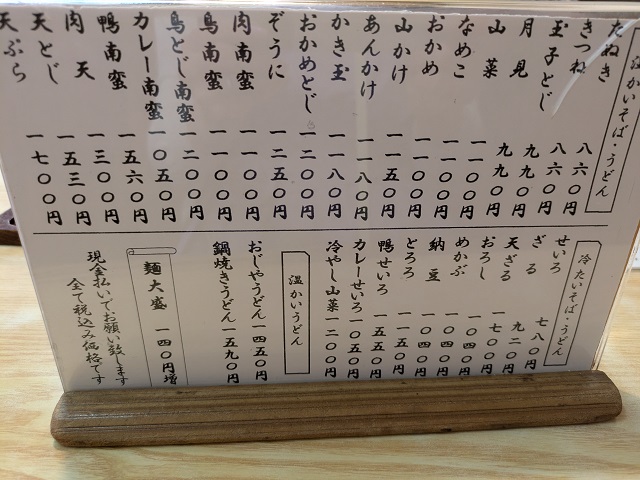 温かいそば・うどん
たぬき 八六〇円
きつね 八六〇円
玉子とじ 九九〇円
月見 九九〇円
山菜 一一〇〇円
なめこ 一一〇〇円
おかめ 一一〇〇円
山かけ 一一五〇円
あんかけ 一一八〇円
かき玉 一一八〇円
おかめとじ 一二〇〇円
ぞうに 一二五〇円
肉南蛮 一一〇〇円
鳥南蛮 一一〇〇円
鳥とじ南蛮 一二〇〇円
カレー南蛮 一〇五〇円
鴨南蛮 一五六〇円
肉天 一三〇〇円
天とじ 一五三〇円
天ぷら 一七〇〇円
冷たいそば・うどん
せいろ 七八〇円
ざる 九二〇円
天ざる 一七〇〇円
おろし 一〇四〇円
めかぶ 一〇四〇円
納豆 一〇四〇円
とろろ 一一五〇円
鴨せいろ 一五五〇円
カレーせいろ 一〇五〇円
冷やし山菜 一二〇〇円
温かいうどん
おじやうどん 一四五〇円
鍋焼きうどん 一五九〇円
麺大盛 一四〇円増
現金払いでお願い致します
全て税込み価格です